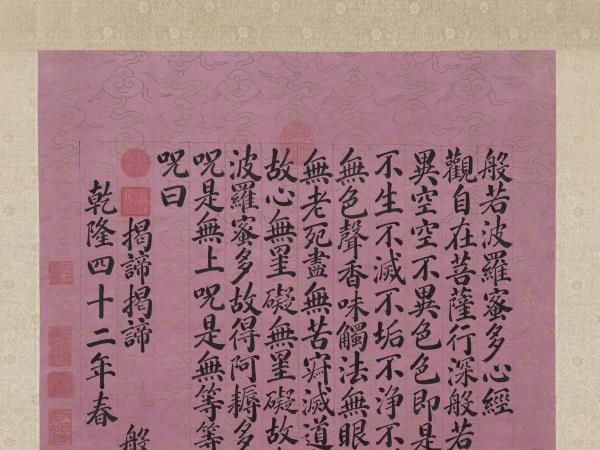 般若波羅蜜多心經
觀自在菩薩行深般若
異空空不異色色即是
不生不滅不垢不淨不
無色聲香味觸法無眼
無老死盡無苦滅道
故心無罣礙無罣礙故
波羅蜜多故得阿耨多
呪是無上呪是無等等
呪曰
揭諦揭諦 般
乾隆四十二年春